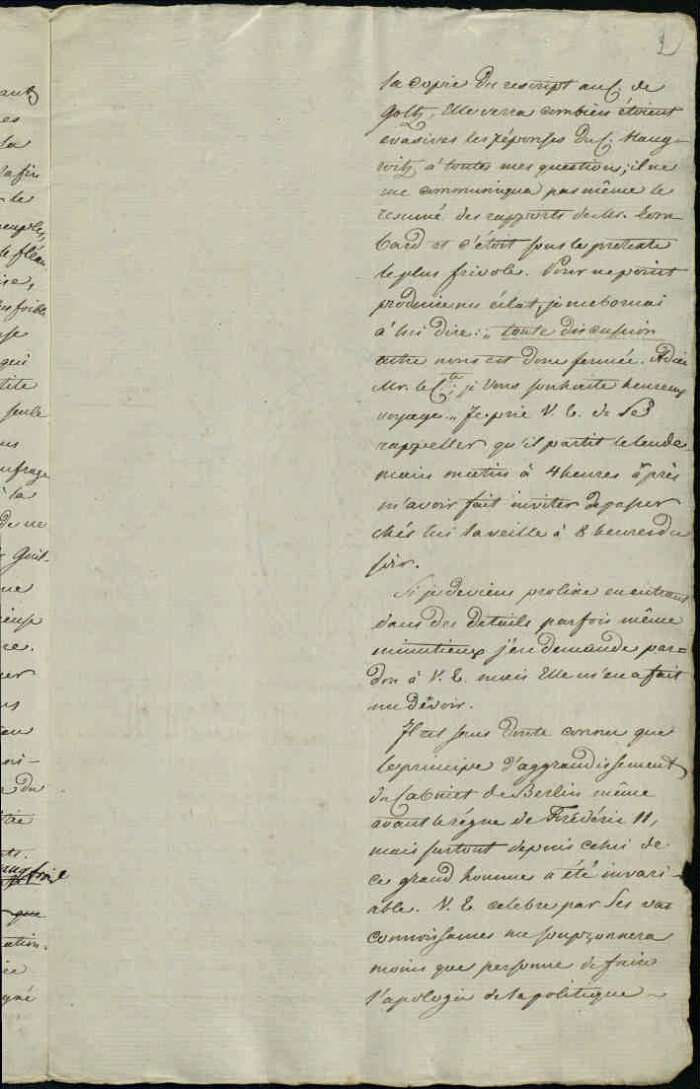 2
la copie du rescript au C. de
Goltz, Elle verra combien étoient
evasives les réponses du C. Haug-
witz à toutes mes questions; il ne
me communiqua pas même le
resumé des rapports de Mr. Lom-
bard et c'étoit sous le pretexte
le plus frivole. Pour ne point
produire un éclat, je me bornai
à lui dire: „toute discussion
entre nous est donc fermée. Adieu
Mr. le Cte; je Vous souhaite heureux
voyage„ Je prie V. E. de Se
rappeller qu'il partit le lende-
main matin à 4 heures après
m'avoir fait inviter de passer
chés lui la veille à 8 heures du
soir.
Si je deviens prolixe en entrant
dans des details parfois même
minutieux j'en demande par=
don à V. E. mais Elle m'en a fait
un devoir.
Il est sans doute connu que
le principe d'aggrandissement
du Cabinet de Berlin même
avant le régne de Frédéric II,
mais surtout depuis celui de
ce grand homme a été invari-
able. V. E. celebre par Ses
connoissances me soupçonnera
moins que personne de faire
l'apologie de la politique
antz
es
la
la fin
le
peuples
le fléau
foible
qui
tite
seule
us
naufrage
à la
de ne
Guil-
ne
re.
du
que
ation.